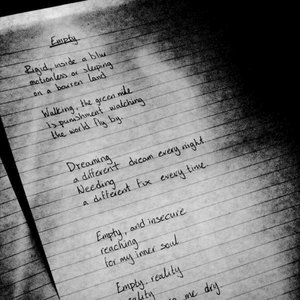 Empty
Rigid, inside a blur
motionless or sleeping
on a barren land.
Walking, the green mile
is punishment watching
the world fly by.
Dreaming
a different dream every night
Needing
a different fix every time.
Empty, and insecure
reaching
for my inner soul.
Empty, reality
me dry.